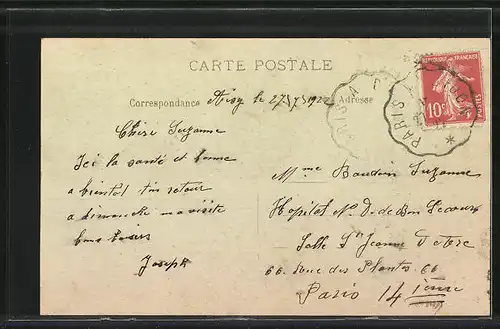 CARTE POSTALE
Correspondance
Adresse
le 27/7/1922
Chère Suzanne
Ici la santé est bonne
a bientot ton retour
a dimanche ma visite
bons baisers
Joseph
Mme Baudoin Suzanne
Hopital N. D. de Bon Secours
Salle Ste Jeanne
66 Rue des Plantes 66
Paris 14 ième
REPUBLIQUE FRANÇAISE
10c
POSTES
PARIS A
PARIS